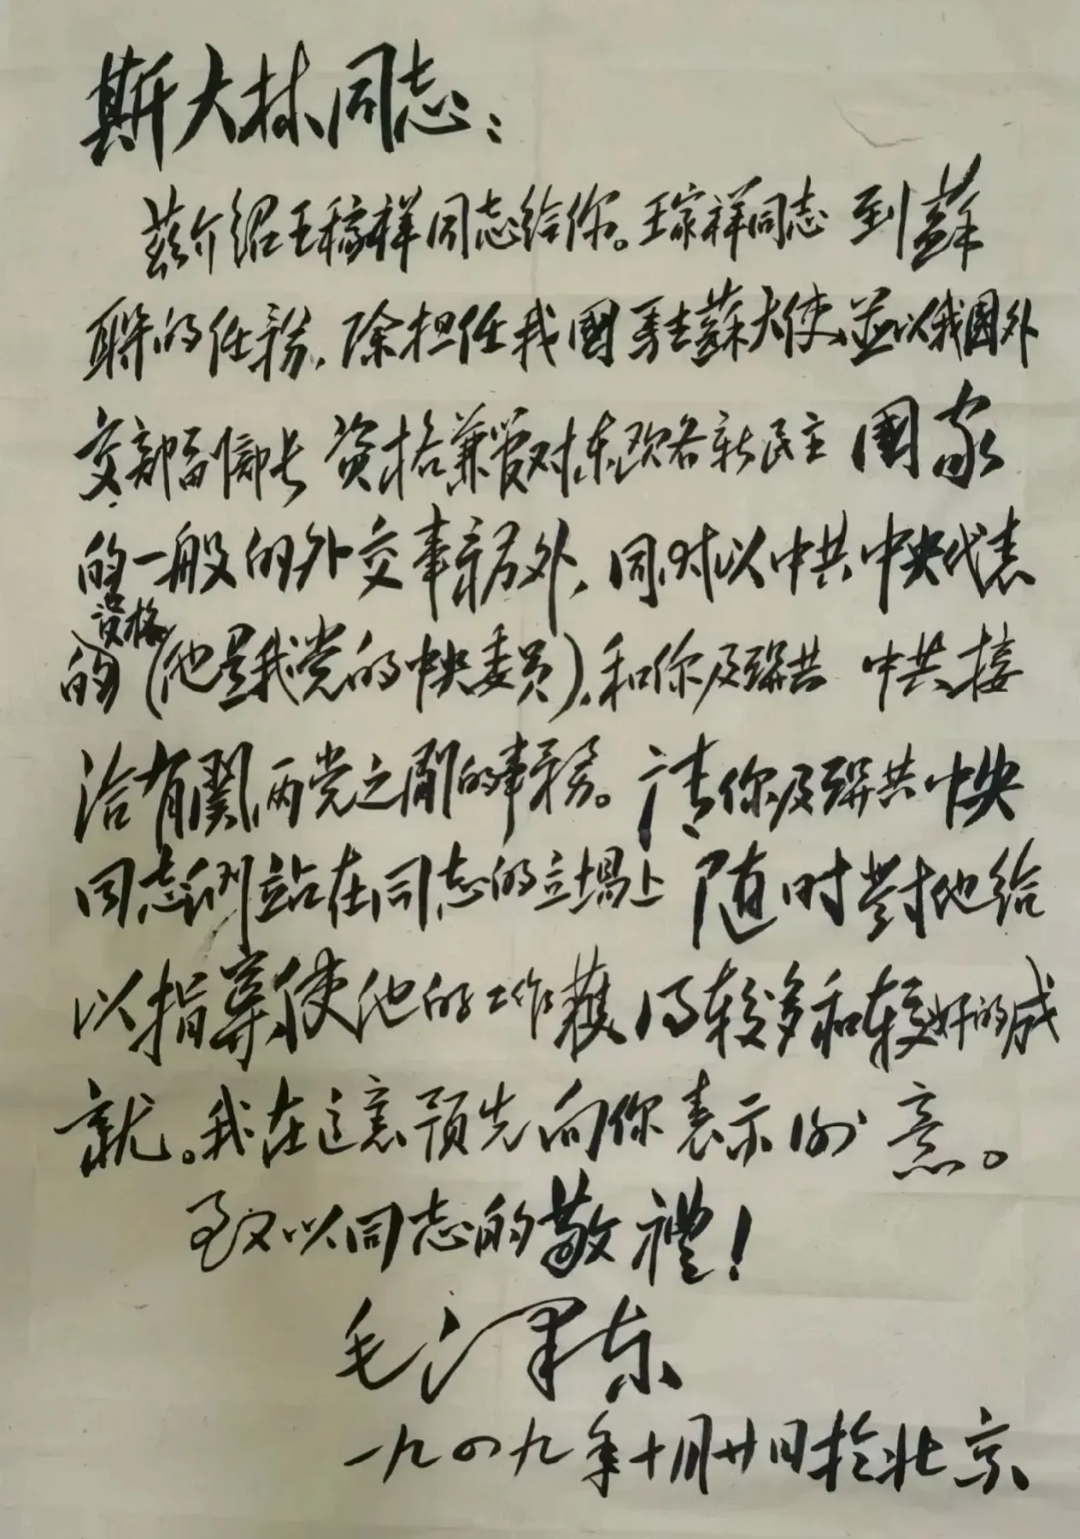 斯大林同志：
兹介绍王稼祥同志给你。王稼祥同志到蘇
联的任務，除担任我國駐蘇大使，並以我國外
交部副部长资格兼管对东欧各新民主國家
的一般的外交事务外，同时以中共中央代表
资格
的（他是我党的中央委员），和你及联共中共接
洽有関两党之間的事務。请你及联共中央
同志们站在同志的立場上随时對他给
以指导，使他的工作獲得较多和较好的成
就。我在这裏预先向你表示谢意。
致以同志的敬禮！
毛泽东
一九四九年十月廿日於北京